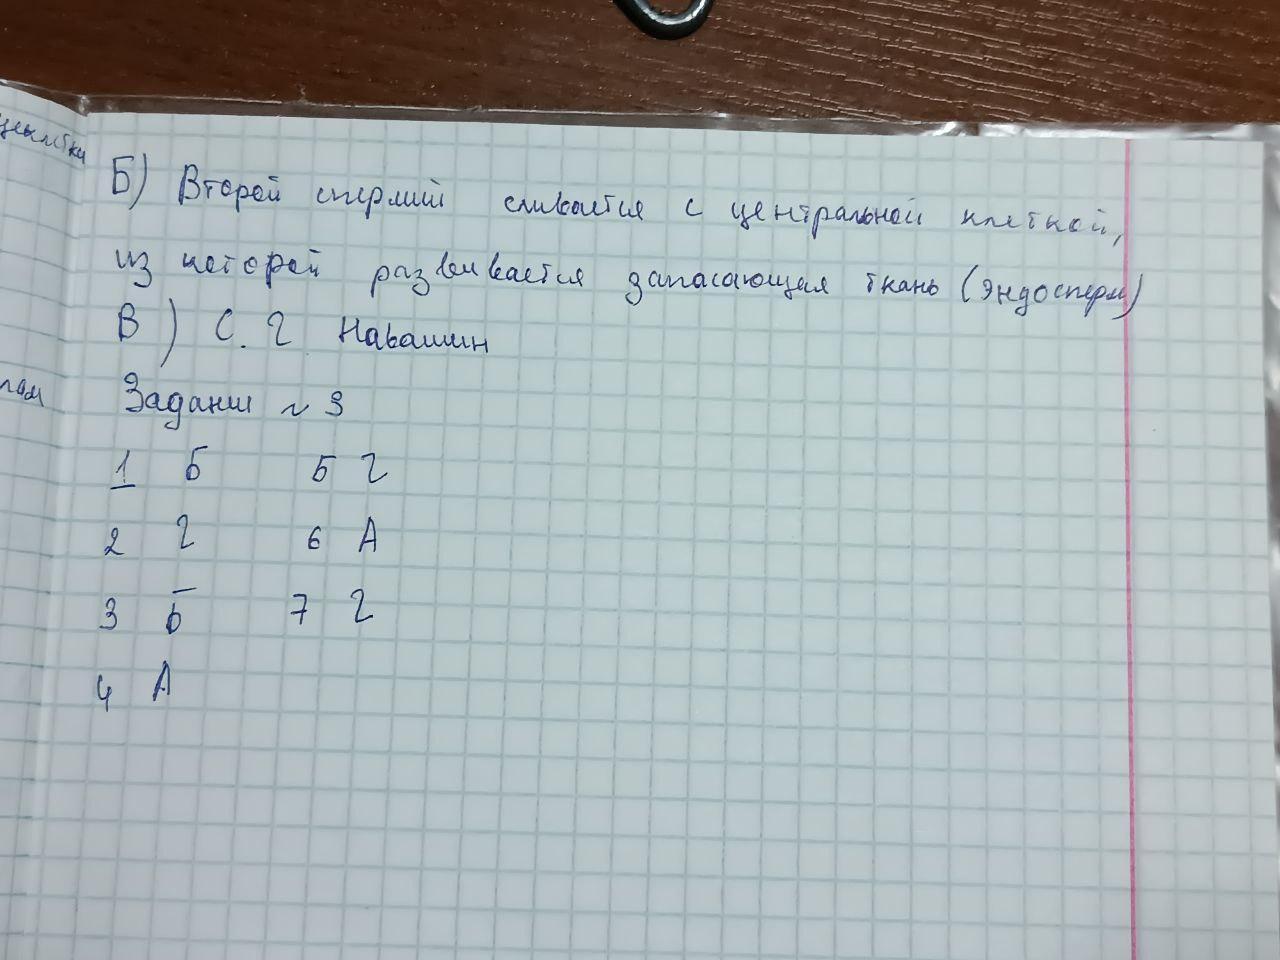 Б) Второй спермий сливается с центральной клеткой,
из которой развивается запасающая ткань (эндосперм)
В) С. Г. Навашин
Задание № 3
1 Б 5 Г
2 Г 6 А
3 Б 7 Г
4 А